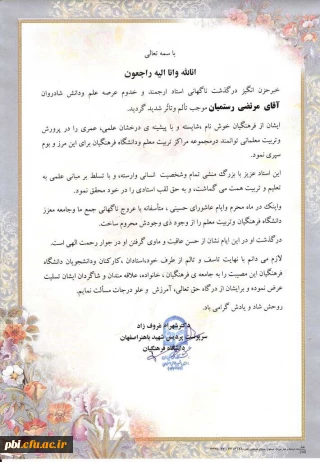 با سمه تعالی
اناللّه وانا الیه راجعون
خبرحزن انگیز درگذشت ناگهانی استاد ارجمند و خدوم عرصه علم ودانش شادروان
آقای مرتضی رستمیان موجب تألم وتأثر شدید گردید.
ایشان از فرهنگیان خوش نام ،شایسته و با پیشینه ی درخشان علمی، عمری را در پرورش
وتربیت معلمانی توانمند درمجموعه مراکز تربیت معلم ودانشگاه فرهنگیان برای این مرز و بوم
سپری نمود.
این استاد عزیز با بزرگ منشی تمام وشخصیت انسانی وارسته، و با تسلط بر مبانی علمی به
تعلیم و تربیت همت می گماشت، و به حق لقب استادی را در خود محقق نمود.
واینک در ماه محرم وایام عاشورای حسینی ، متأسفانه با عروج ناگهانی جمع ما وجامعه معزز
دانشگاه فرهنگیان وتربیت معلم را از وجود ذی وجودش محروم ساخت.
درگذشت او در این ایام نشان از حسن عاقبت و ماوی گرفتن او در جوار رحمت الهی است.
لازم می دانم با نهایت تاسف و تالم از طرف خود،استادان ،کارکنان ودانشجویان دانشگاه
فرهنگیان این مصیبت را به جامعه ی فرهنگیان ، خانواده، علاقه مندان و شاگردان ایشان تسلیت
عرض نموده و برایشان از درگاه حق تعالی، آمرزش و علو درجات مسألت نمایم.
روحش شاد و یادش گرامی باد.
دکترشهرام عروف زاد
سرپرست پردیس شهید باهنراصفهان
دانشگاه فرهنگیان
pbi.cfu.ac.ir